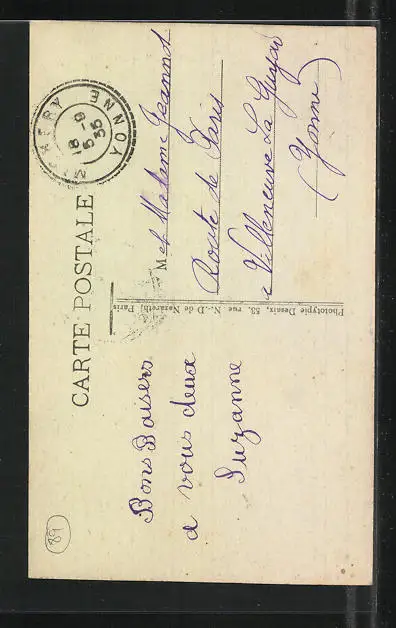 CARTE POSTALE
YONNE
18 - 9
5
35
Bons Baisers
a vous deux
Suzanne
Phototypie Desaix, 53, rue N.-D de Nazareth, Paris
M et Madame Jeannot
Route de Paris
a Villeneuve La Guyard
(Yonne)
89